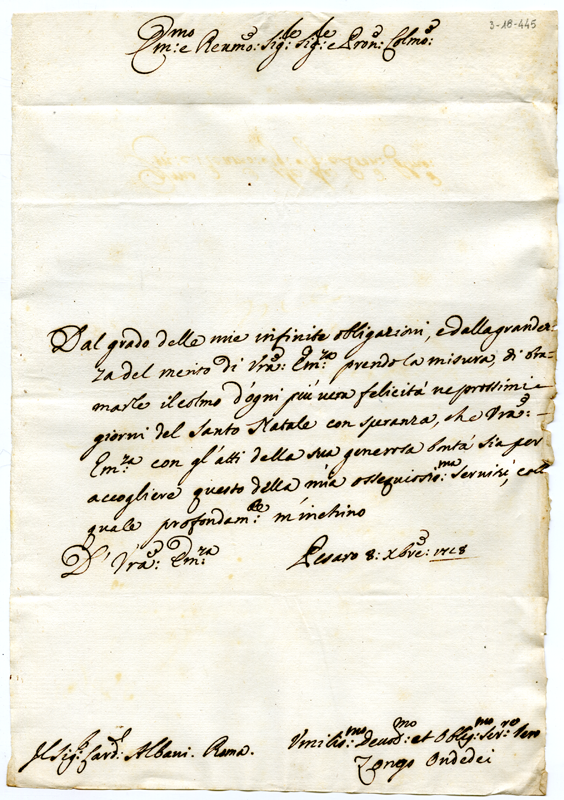 3-18-445
Em:mo e Renmo: Sig:le Sig:le e Pron: Colmo:
Dal grado delle mie infinite obligazioni, e dalla grandez-
za del merito di Vra: Em:za prendo la misura, di bra-
marle il colmo d'ogni piú vera felicitá ne prossimi
giorni del Santo Natale con speranza, che Vra:
Em:za con gl'atti della sua generosa bontá sia per
accogliere questo della mia ossequiosis:ma Servitú, coll
quale profondam:te m'inchino
D' Vra: Em:za
Pesaro 8: Xbre: 1718
Il Sig:r Card:l Albani. Roma.
Vmilis:mo Deuot:mo et Oblig:mo Ser:ro Vero
Zongo Ondedei